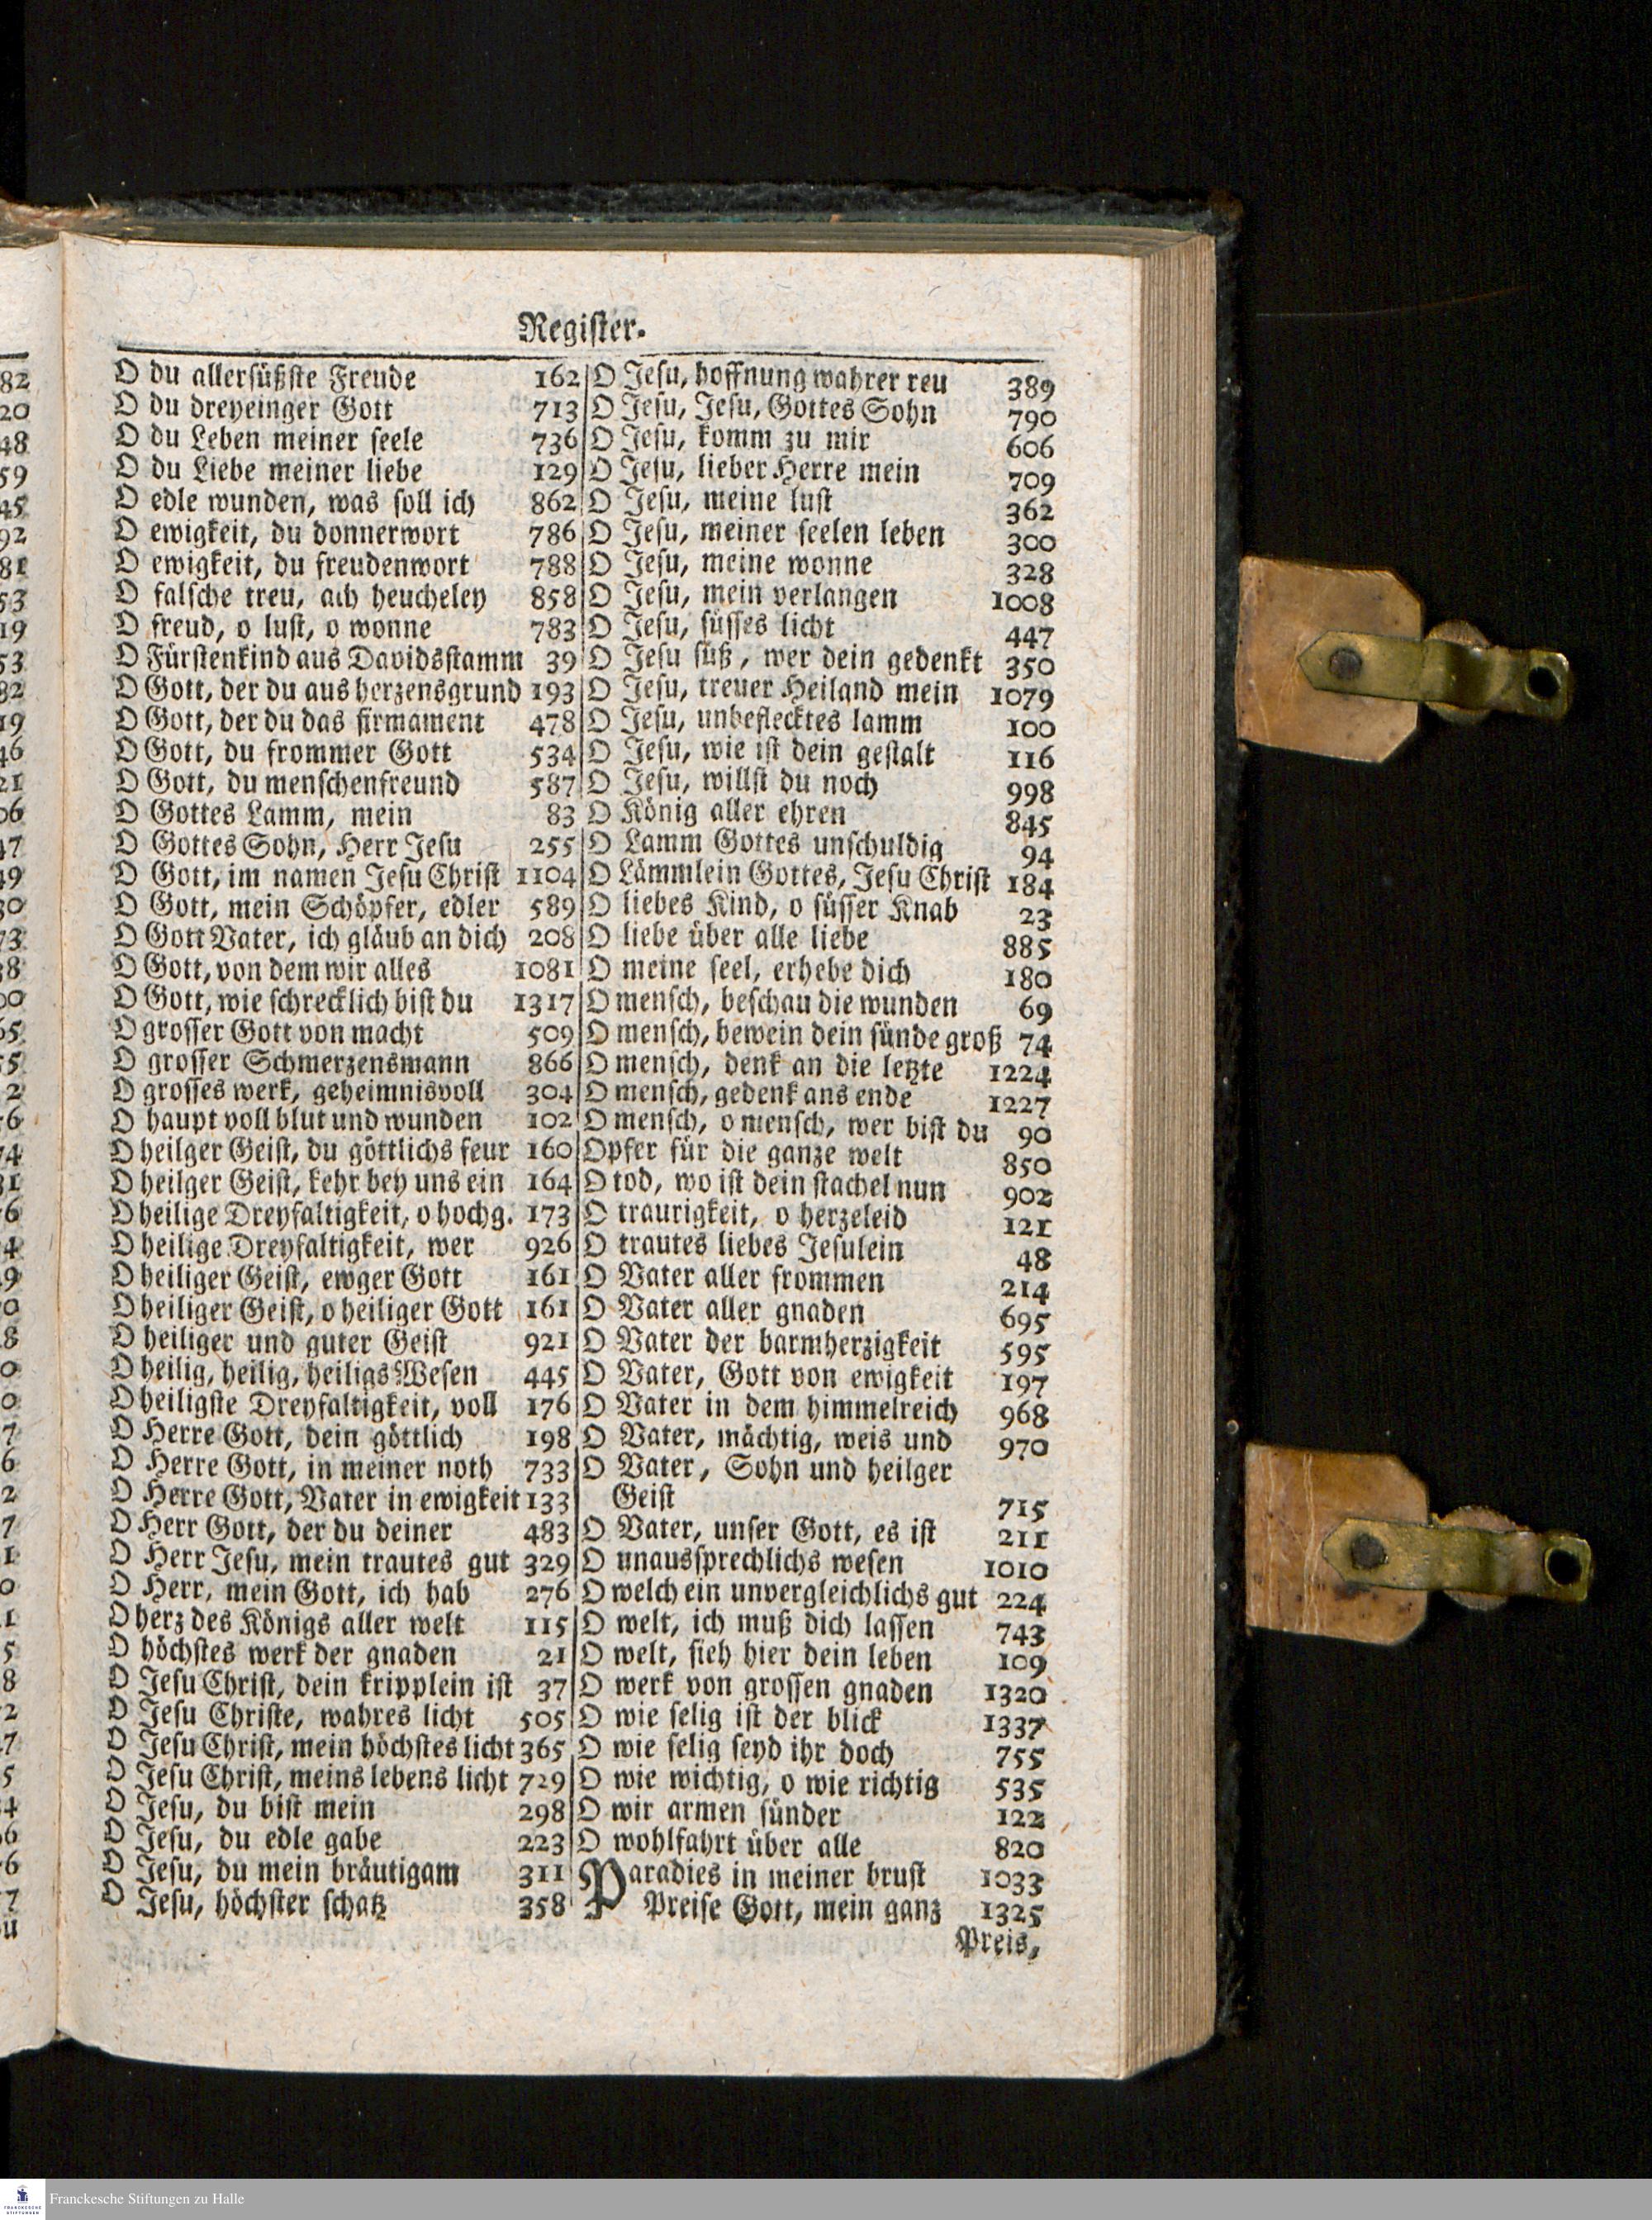 Register.
O du allersüßste Freude 162
O du dreyeinger Gott 713
O du Leben meiner seele 736
O du Liebe meiner liebe 129
O edle wunden, was soll ich 862
O ewigkeit, du donnerwort 786
O ewigkeit, du freudenwort 788
O falsche treu, ach heucheley 858
O freud, o lust, o wonne 783
O Fürstenkind aus Davidsstamm 39
O Gott, der du aus herzensgrund 193
O Gott, der du das firmament 478
O Gott, du frommer Gott 534
O Gott, du menschenfreund 587
O Gottes Lamm, mein 83
O Gottes Sohn, Herr Jesu 255
O Gott, im namen Jesu Christ 1104
O Gott, mein Schöpfer, edler 589
O Gott Vater, ich gläub an dich 208
O Gott, von dem wir alles 1081
O Gott, wie schrecklich bist du 1317
O grosser Gott von macht 509
O grosser Schmerzensmann 866
O grosses werk, geheimnisvoll 304
O haupt voll blut und wunden 102
O heilger Geist, du göttlichs feur 160
O heilger Geist, kehr bey uns ein 164
O heilige Dreyfaltigkeit, o hochg. 173
O heilige Dreyfaltigkeit, wer 926
O heiliger Geist, ewger Gott 161
O heiliger Geist, o heiliger Gott 161
O heiliger und guter Geist 921
O heilig, heilig, heiligs Wesen 445
O heiligste Dreyfaltigkeit, voll 176
O Herre Gott, dein göttlich 198
O Herre Gott, in meiner noth 733
O Herre Gott, Vater in ewigkeit 133
O Herr Gott, der du deiner 483
O Herr Jesu, mein trautes gut 329
O Herr, mein Gott, ich hab 276
O herz des Königs aller welt 115
O höchstes werk der gnaden 21
O Jesu Christ, dein kripplein ist 37
O Jesu Christe, wahres licht 505
O Jesu Christ, mein höchstes licht 365
O Jesu Christ, meins lebens licht 729
O Jesu, du bist mein 298
O Jesu, du edle gabe 223
O Jesu, du mein bräutigam 311
O Jesu, höchster schatz 358
O Jesu, hoffnung wahrer reu 389
O Jesu, Jesu, Gottes Sohn 790
O Jesu, komm zu mir 606
O Jesu, lieber Herre mein 709
O Jesu, meine lust 362
O Jesu, meiner seelen leben 300
O Jesu, meine wonne 328
O Jesu, mein verlangen 1008
O Jesu, süsses licht 447
O Jesu süß, wer dein gedenkt 350
O Jesu, treuer Heiland mein 1079
O Jesu, unbeflecktes lamm 100
O Jesu, wie ist dein gestalt 116
O Jesu, willst du noch 998
O König aller ehren 845
O Lamm Gottes unschuldig 94
O Lämmlein Gottes, Jesu Christ 184
O liebes Kind, o süsser Knab 23
O liebe über alle liebe 885
O meine seel, erhebe dich 180
O mensch, beschau die wunden 69
O mensch, bewein dein sünde groß 74
O mensch, denk an die letzte 1224
O mensch, gedenk ans ende 1227
O mensch, o mensch, wer bist du 90
Opfer für die ganze welt 850
O tod, wo ist dein stachel nun 902
O traurigkeit, o herzeleid 121
O trautes liebes Jesulein 48
O Vater aller frommen 214
O Vater aller gnaden 695
O Vater der barmherzigkeit 595
O Vater, Gott von ewigkeit 197
O Vater in dem himmelreich 968
O Vater, mächtig, weis und 970
O Vater, Sohn und heilger
Geist 715
O Vater, unser Gott, es ist 211
O unaussprechlichs wesen 1010
O welch ein unvergleichlichs gut 224
O welt, ich muß dich lassen 743
O welt, sieh hier dein leben 109
O werk von grossen gnaden 1320
O wie selig ist der blick 1337
O wie selig seyd ihr doch 755
O wie wichtig, o wie richtig 535
O wir armen sünder 122
O wohlfahrt über alle 820
Paradies in meiner brust 1033
Preise Gott, mein ganz 1325
Preis,
Franckesche Stiftungen zu Halle